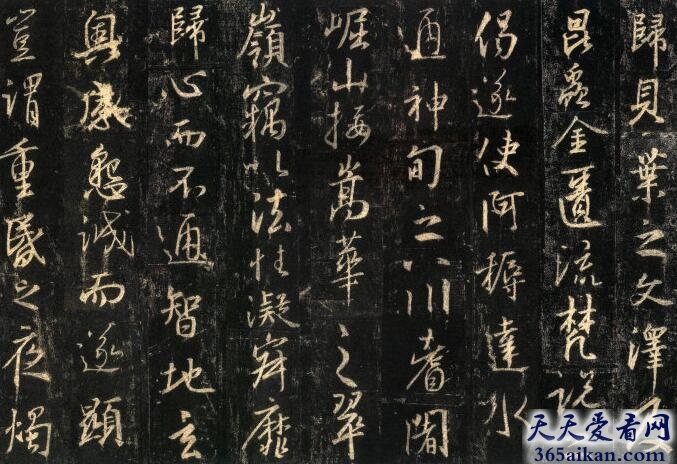 歸貝葉之文澤
昆蟲金匱流梵説
偈遂使阿耨達水
通神甸之八川耆闍
崛山接嵩華之翠
嶺竊以法性凝寂靡
歸心而不通智地玄
奧感懇誠而遂顯
豈謂重昏之夜燭
天天爱看网
365aikan.com